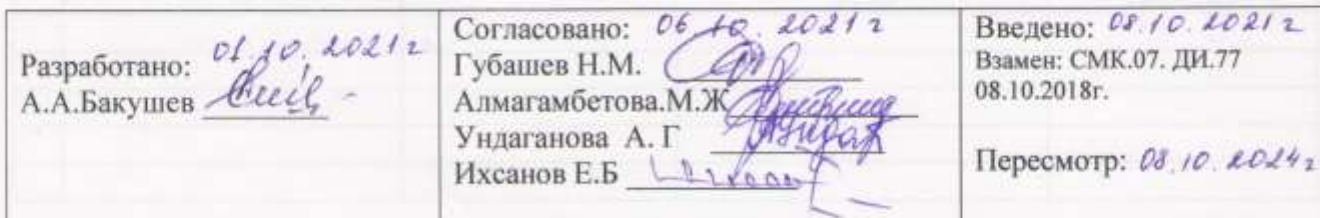 Разработано: 01.10.2021г
А.А.Бакушев
Согласовано: 06.10.2021г
Губашев Н.М.
Алмагамбетова.М.Ж
Ундаганова А. Г
Ихсанов Е.Б
Введено: 08.10.2021г
Взамен: СМК.07. ДИ.77
08.10.2018г.
Пересмотр: 08.10.2024г